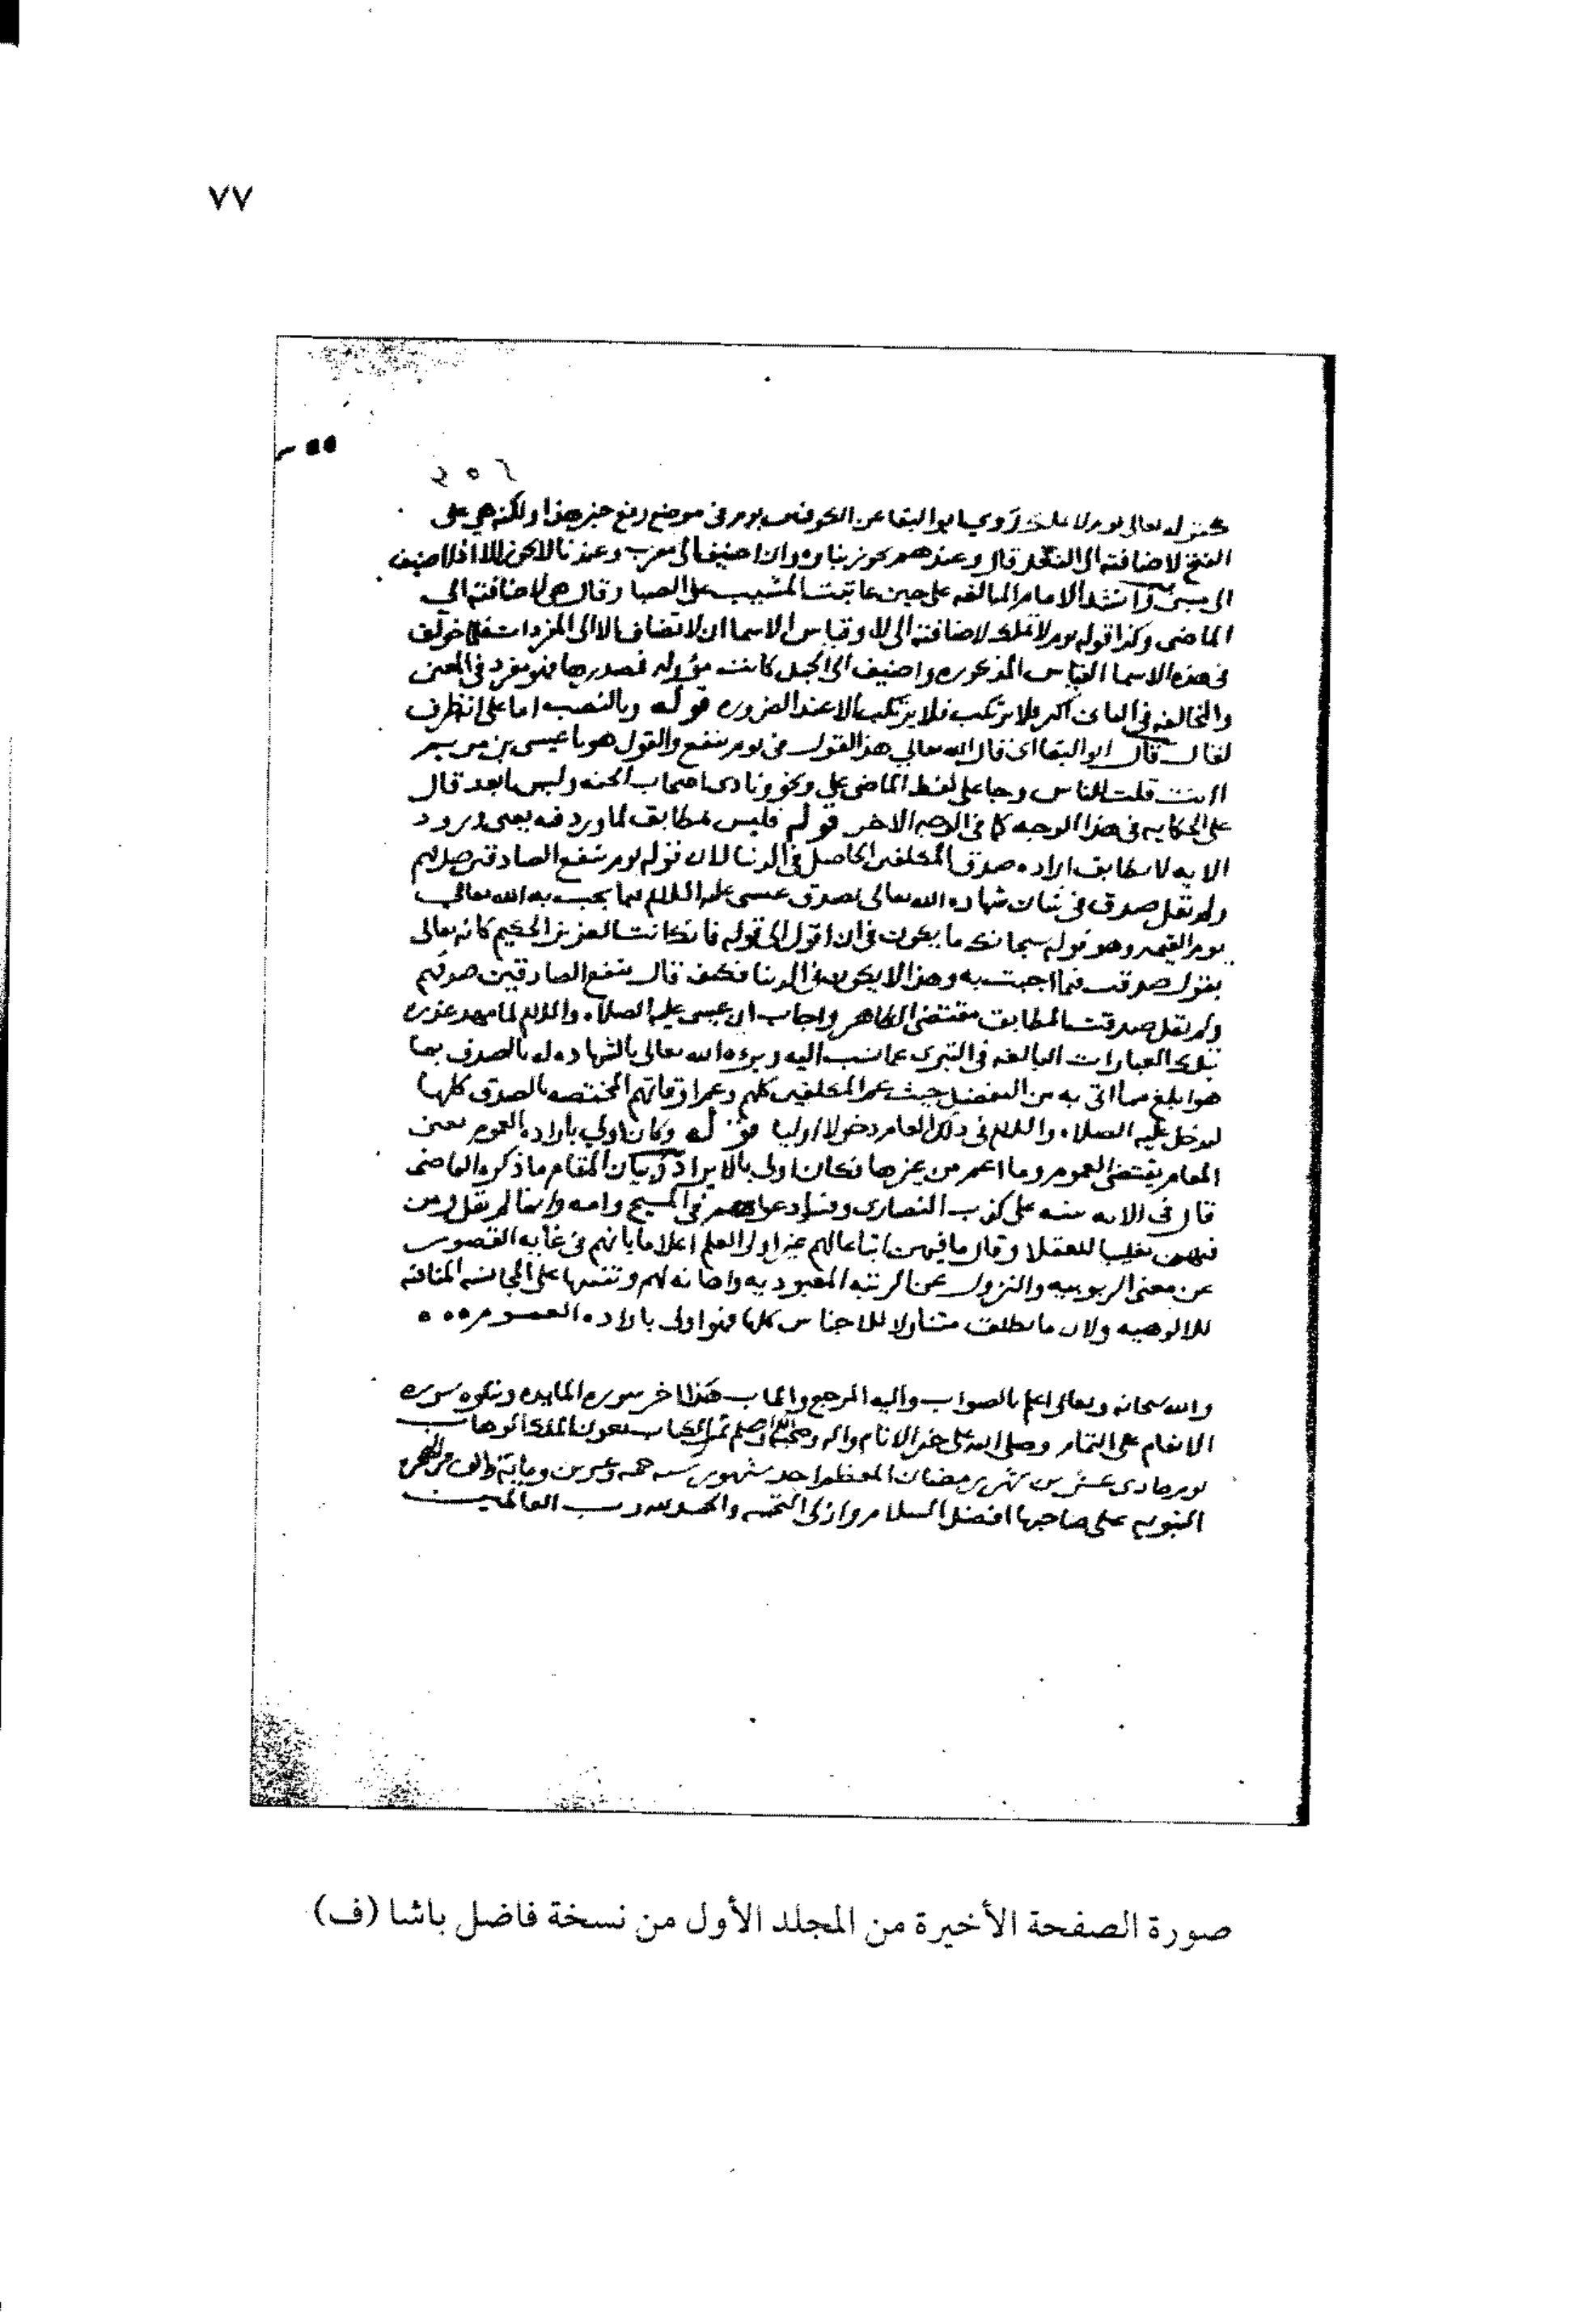 ٧٧
٢٥٢
كقوله تعالى يوم لا تملك روى ابو البقا عن الكوفيين يوم في موضع رفع خبر هذا ولكنه بني على
الفتح لاضافته الى الفعل قال وعندهم يجوز بناوه وان اضيف الى معرب وعندنا لا يجوز الا اذا اضيف
الى مبنى وانشد الامام المالقه على حين عاتبت المشيب على الصبا وقال بنى لاضافته الى
الماضى وكذا قوله يوم لا تملك لاضافته الى لا وقياس الاسما ان لا تضاف الا الى المفردات فلما خولف
فى هذه الاسما القياس المذكوره واضيف الى الجمل كانت مؤوله بمصدرها فهو مفرد فى المعنى
والمخالفه فى فلا يرتكب الا عند الضروره قوله وبالنصب اما على انه ظرف
لقال قال ابو البقا اى قال الله تعالى هذا القول فى يوم ينفع والقول هو يا عيسى بن مريم
اانت قلت للناس وجا على لفظ الماضى على نحو ونادى اصحاب الجنه وليس ما بعد قال
على الحكايه فى هذا الوجه كما فى الوجه الاخر قوله فليس بمطابق لما ورد فيه يعنى ورود
الايه لا يطابق اراده صدق المكلفين الحاصل فى الدنيا لان قوله يوم ينفع الصادقين صدقهم
ولم يقل صدق فى بيان شهاده الله تعالى بصدق عيسى عليه السلام فيما يجيب به الله تعالى
يوم القيمه وهو قوله سبحانك ما يكون لى ان اقول الى قوله فانك انت العزيز الحكيم كانه تعالى
يقول صدقت فيما اجبت به وهذا لا يكون فى الدنيا فكيف قال ينفع الصادقين صدقهم
ولم يقل صدقت المطابق مقتضى الظاهر واجاب ان عيسى عليه الصلاه والسلام لما مهد عذره
بتلك العبارات البالغه فى التبرى عما نسب اليه وبروه الله تعالى بالشهاده له بالصدق بما
هو ابلغ مما اتى به من التفضيل حيث عمر المكلفين كلهم وعم اوقاتهم المختصه بالصدق كلها
ليدخل عليه الصلاه والسلام فى ذلك العام دخولا اوليا قوله وكان اولى باراده العموم يعنى
المقام يقتضى العموم وما اعم من غيرها فكان اولى بالايراد وبيان المقام ما ذكره القاضى
قال فى الايه تنبيه على كذب النصارى وفساد دعواهم فى المسيح وامه وانما لم يقل ومن
فيهن تغليبا للعقلا وقال ما فيهن اتباعا لهم غير اولى العلم اعلاما بانهم فى غايه القصور
عن معنى الربوبيه والنزول عن الرتبه المعبوديه واهانه لهم وتنبيها على المجانسه المنافيه
للالوهيه ولان ما يطلق متناولا للاجناس كلها فهو اولى باراده العموم ٥٥٥
والله سبحانه وتعالى اعلم بالصواب واليه المرجع والماب هذا اخر سوره المايده ويتلوه سوره
الانعام على التمام وصلى الله على خير الانام واله وصحبه وسلم تم الكتاب بعون الملك الوهاب
يوم حادى عشر من شهر رمضان المعظم احد شهور سنه خمسه وعشرين ومايه والف من الهجره
النبويه على صاحبها افضل السلام وازكى التحيه والحمد لله رب العالمين
صورة الصفحة الأخيرة من المجلد الأول من نسخة فاضل باشا (ف)